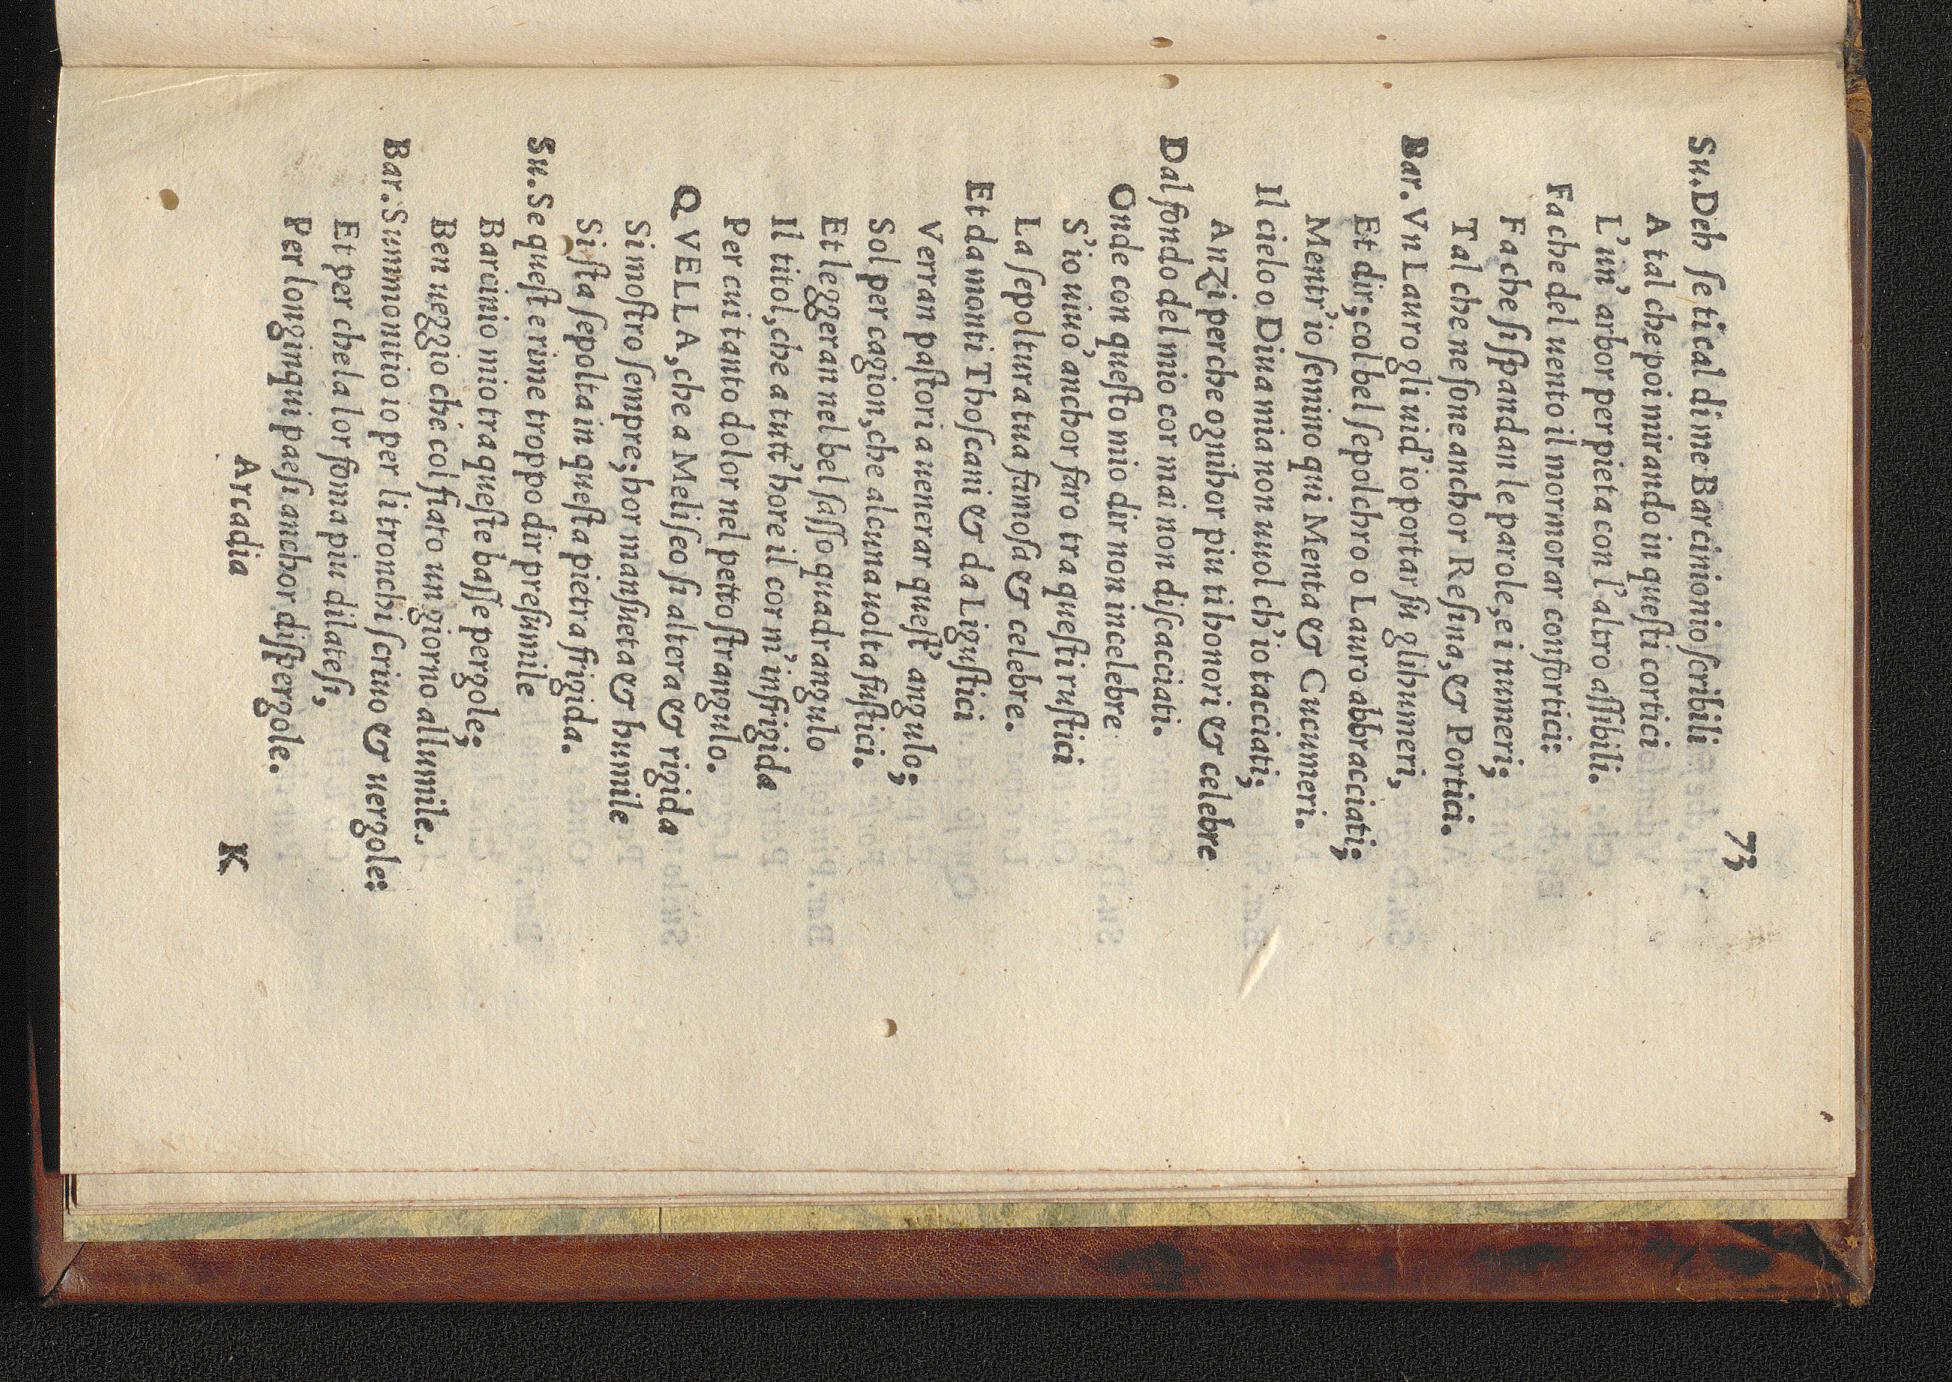 73
Su. Deh ſe ti cal di me Barcinio nio ſcribili
A tal che poi mirando in queſti cortici
L'un' arbor per pieta con l'altro aſſibili.
Fa che del uento il mormorar confortici:
Fa che ſi ſpandan le parole, e i numeri;
Tal che ne ſone anchor Reſina, & Portici.
Bar. Vn Lauro gli uid'io portar ſu gli humeri,
Et dir; col bel ſepolchro o Lauro abbracciati;
Mentr'io ſemino qui Menta & Cucumeri.
Il cielo o Diua mia non uuol ch'io tacciati;
Anzi perche ognihor piu ti honori & celebre
Dal fondo del mio cor mai non diſcacciati.
Onde con queſto mio dir non incelebre
S'io uiuo, anchor faro tra queſti ruſtici
La ſepoltura tua famoſa & celebre.
Et da monti Thoſcani & da Liguſtici
Verran paſtori a uenerar queſt' angulo;
Sol per cagion, che alcuna uolta fuſtici.
Et leggeran nel bel ſaſſo quadrangulo
Il titol, che a tutt'hore il cor m'infrigida
Per cui tanto dolor nel petto ſtrangulo.
QVELLA, che a Meliſeo ſi altera & rigida
Si moſtro ſempre; hor manſueta & humile
Si ſta ſepolta in queſta pietra frigida.
Su. Se queſte rime troppo dir preſumile
Barcinio mio tra queſte baſſe pergole;
Ben ueggio che col fiato un giorno allumile.
Bar. Summonitio io per li tronchi ſcriuo & uergole:
Et per che la lor fama piu dilateſi,
Per longinqui paeſi anchor diſpergole.
Arcadia K